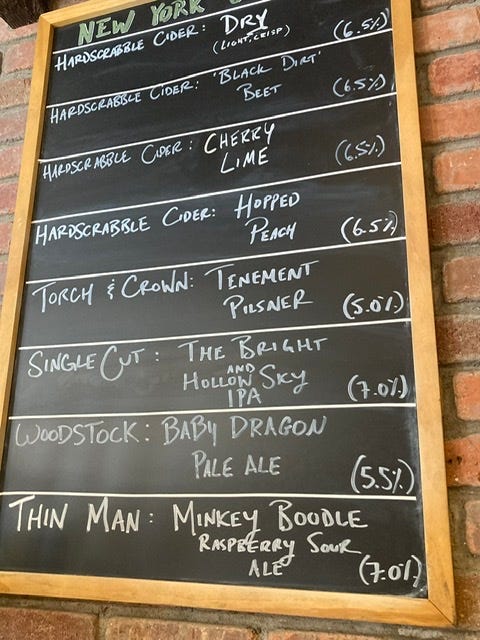 NEW YORK
HARDSCRABBLE CIDER: DRY (6.5%)
(LIGHT, CRISP)
HARDSCRABBLE CIDER: 'BLACK DIRT'
BEET (6.5%)
HARDSCRABBLE CIDER: CHERRY
LIME (6.5%)
HARDSCRABBLE CIDER: HOPPED
PEACH (6.5%)
TORCH & CROWN: TENEMENT
PILSNER (5.0%)
SINGLECUT: THE BRIGHT
AND
HOLLOW SKY
IPA (7.0%)
WOODSTOCK: BABY DRAGON
PALE ALE (5.5%)
THIN MAN: MINKEY BOODLE
RASPBERRY SOUR
ALE (7.0%)